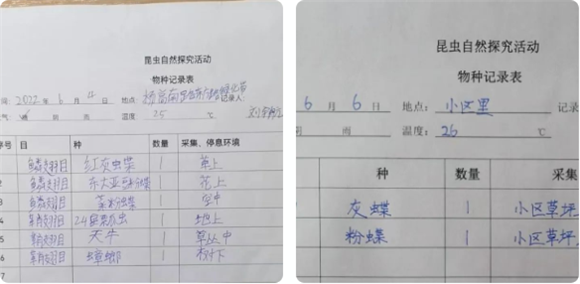 昆虫自然探究活动
物种记录表
2022 年 6 月 4 日 地点 记录人
气 晴 温度 25 ℃
序号 目 种 数量 采集、停息环境
鳞翅目 红灰蛱蝶 1 草上
2 鳞翅目 东大亚 粉蝶 1 花上
3 鳞翅目 菜粉蝶 1 空中
4 鞘翅目 24 虫 1 地上
5 鞘翅目 天牛 1 草丛中
6 目 蟑螂 1 树下
7
昆虫自然探究活动
物种记录表
6 月 6 日 地点: 小区里 记录
雨 温度: 26 ℃
种 数量 采集
灰蝶 1 小区草坪
粉蝶 1 小区草坪